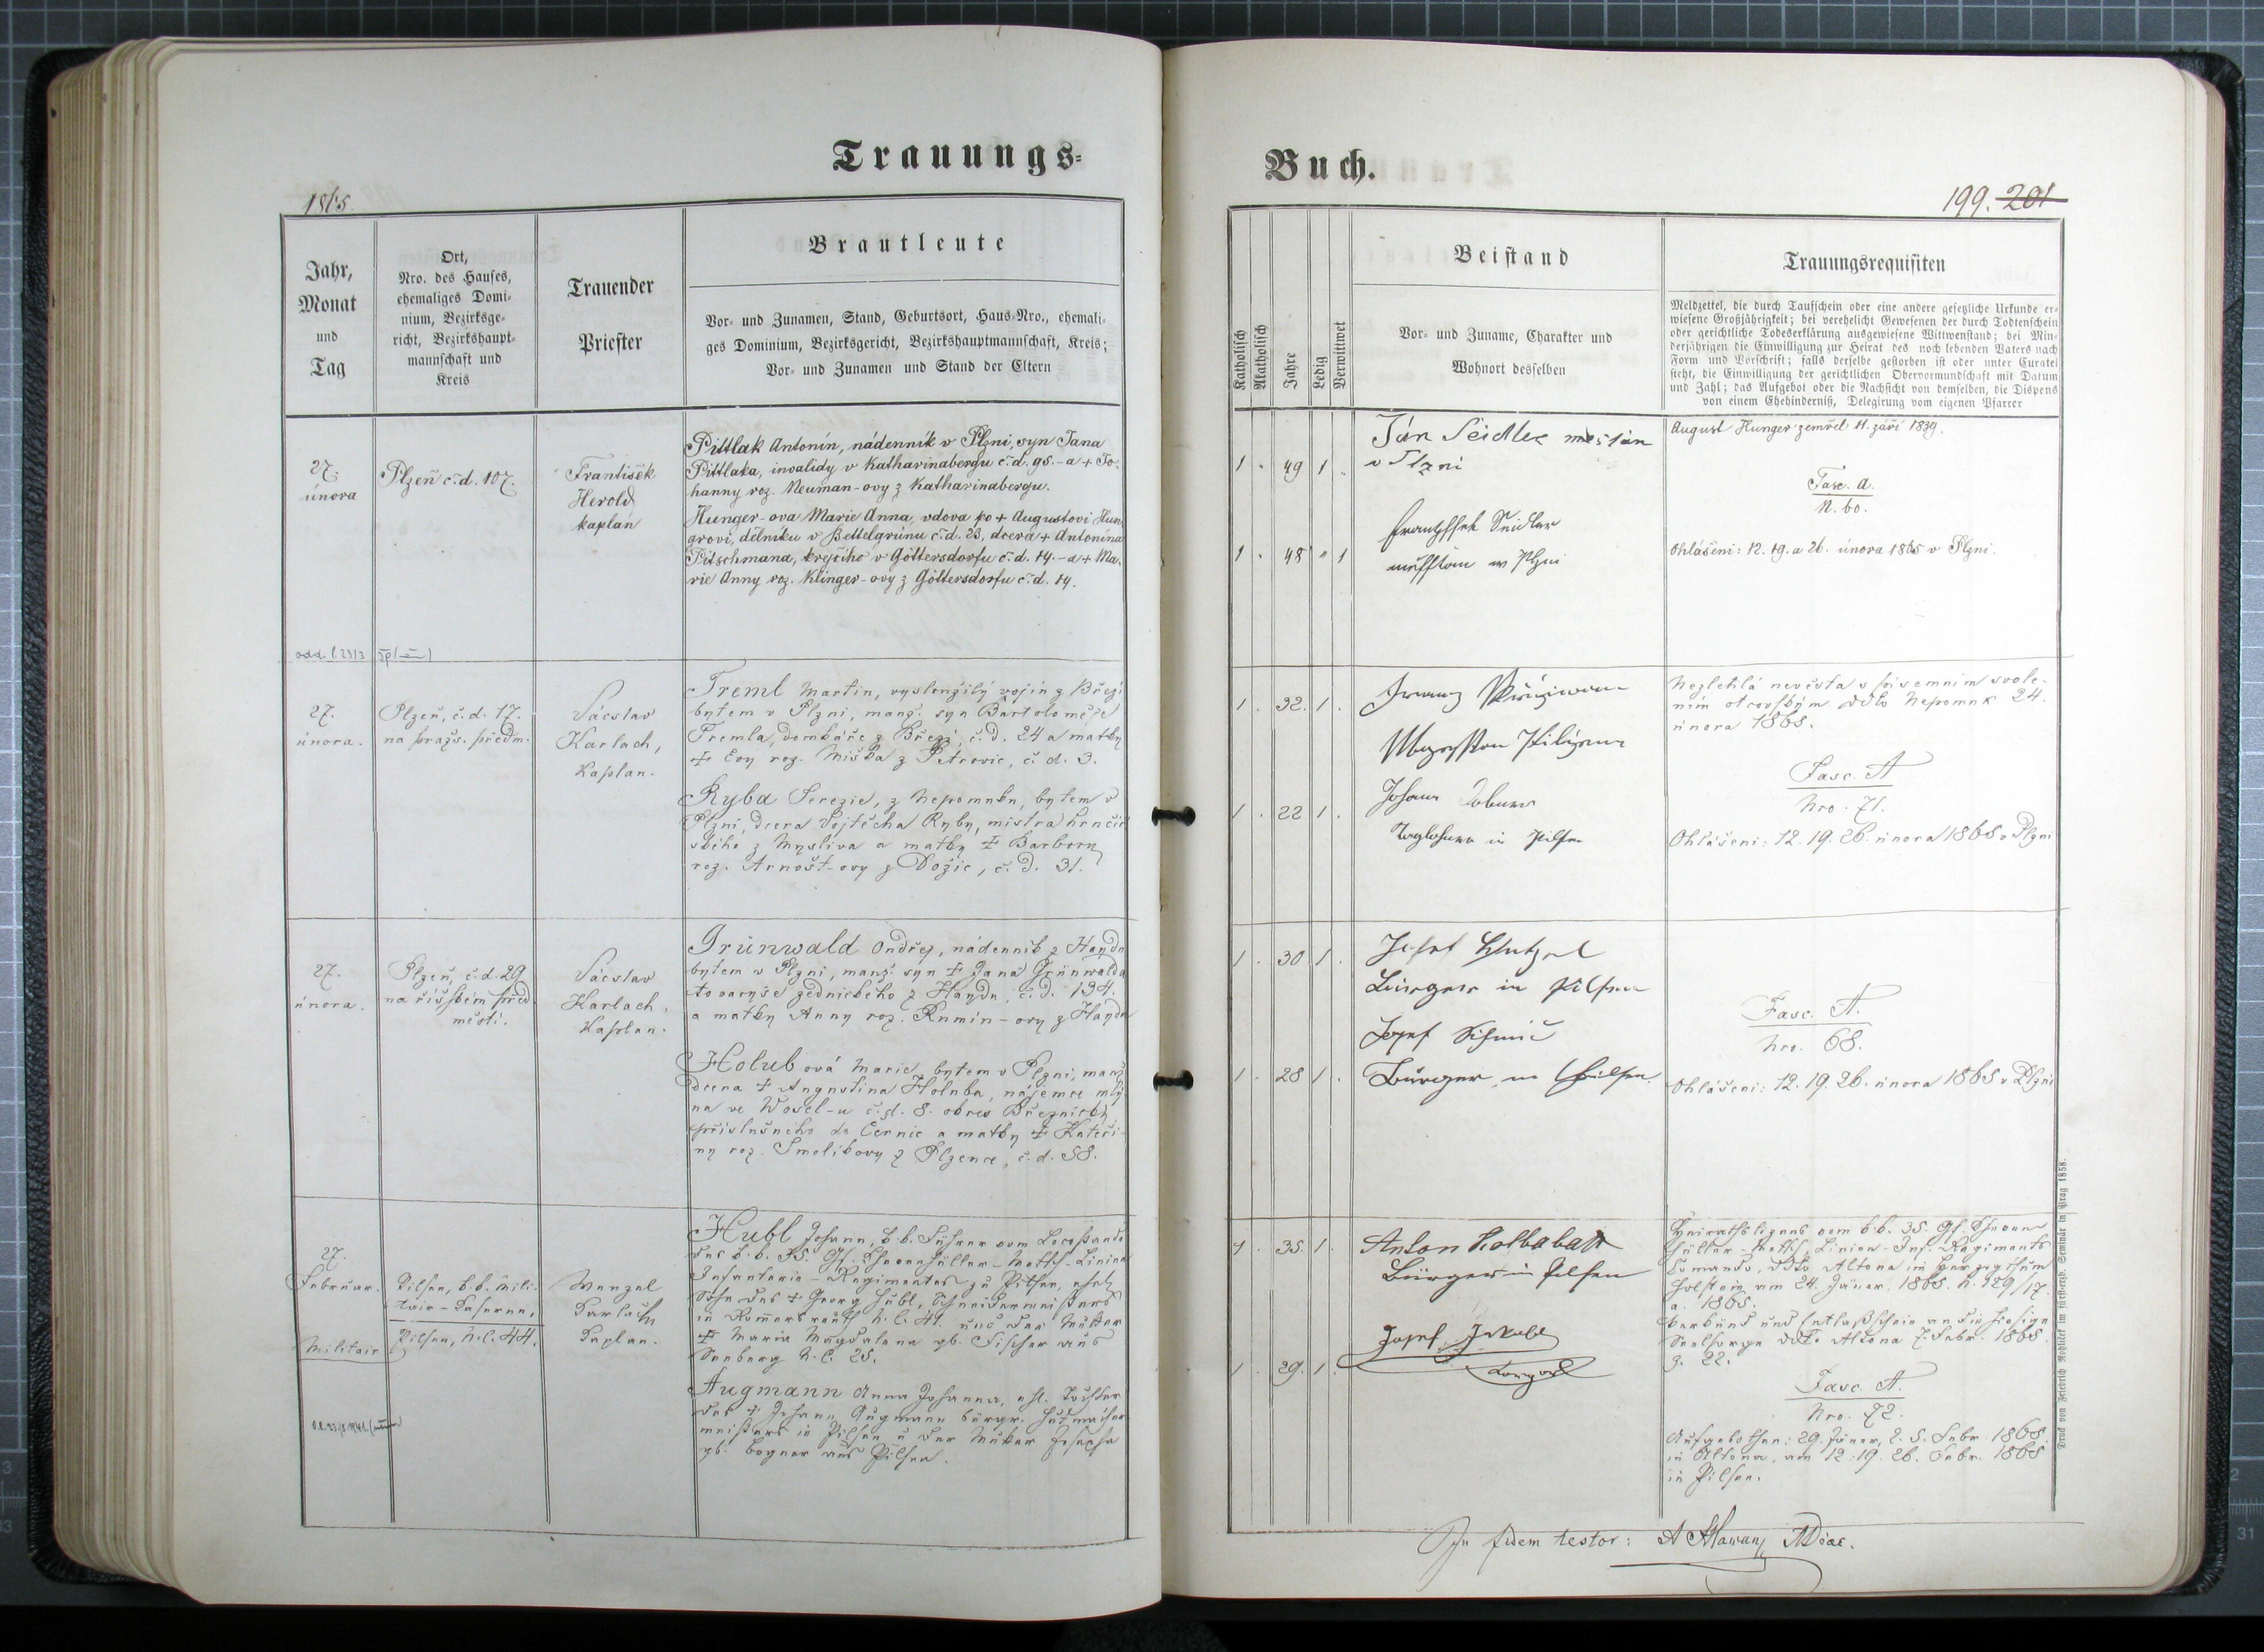 Trauungs=
1865.
Jahr,
Monat
und
Tag
Ort,
Nro. des Hauses,
ehemaliges Domi-
nium, Bezirksge-
richt, Bezirkshaupt-
mannschaft und
Kreis
Trauender
Priester
Brautleute
Vor- und Zunamen, Stand, Geburtsort, Haus-Nro., ehemali-
ges Dominium, Bezirksgericht, Bezirkshauptmannschaft, Kreis;
Vor- und Zunamen und Stand der Eltern
27.
února
Plzeň č. d. 107.
František
Herold
kaplan
Pittlak Antonín, nádenník v Plzni, syn Jana
Pittlaka, invalidy v Katharinabergu č. d. 95. - a + Jo-
hanny roz. Neuman-ovy z Katharinabergu.
Hunger-ova Marie Anna, vdova po + Augustovi Hun-
grovi, dělníku v Bettelgrünu č. d. 23, dcera + Antonína
Pitschmana, krejčího v Göttersdorfu č. d. 14. - a + Ma-
rie Anny roz. Klinger-ovy z Göttersdorfu č. d. 14.
27.
února.
Plzeň, č. d. 17.
na pražs. předm.
Václav
Karlach,
Kaplan.
Treml Martin, vysloužilý vojín z Březí
bytem v Plzni, manž. syn Bartoloměje
Tremla, domkáře z Březí, č. d. 24 a matky
+ Evy roz. Miška z Petrovic, č. d. 3.
Ryba Terezie, z Nepomuku, bytem v
Plzni, dcera Vojtěcha Ryby, mistra hrnčíř
ského z Mysliva a matky + Barbory
roz. Arnošt-ovy z Dožic, č. d. 31.
27.
února.
Plzeň, č. d. 29
na říšském před
městí.
Václav
Karlach,
Kaplan.
Grünwald Ondřej, nádenník z Haydu
bytem v Plzni, manž. syn + Jana Grünwalda
tovaryše zednického z Haydu, č. d. 134.
a matky Anny roz. Rumin-ovy z Haydu
Holubová Marie, bytem v Plzni, manž.
dcera + Augustina Holuba, nájemce mlý
na ve Wosel-u č. d. 8. okres Březnický
příslušného do Černic a matky + Kateři-
ny roz. Smolíkovy z Plzence, č. d. 58.
27.
Februar.
Militair
Pilsen, k. k. Mili-
tair-Kaserne,
Pilsen, N. C. 44.
Wenzel
Karlach
Kaplan.
Hubl Johann, k. k. Führer vom
des k. k. 35. Gf. Khevenhüller-Metsch-Linien
Infanterie-Regimentes zu Pilsen, ehel.
Sohn des + Georg Hubl, Schneidermeisters
in N. C. 41. und der Mutter
+ Maria Magdalena gb. Fischer aus
Seeberg N. C. 25.
Augmann Anna Johanna, ehl. Tochter
des + Johann Augmann bürgr. Hutmacher
meisters in Pilsen u der Mutter Josepha
gb. Bogner aus Pilsen.
Buch.
199. 201
Katholisch
Akatholisch
Jahre
Ledig
Verwittwet
Beistand
Vor- und Zuname, Charakter und
Wohnort desselben
Trauungsrequisiten
Meldzettel, die durch Taufschein oder eine andere gesetzliche Urkunde er-
wiesene Großjährigkeit; bei verehelicht Gewesenen der durch Todtenschein
oder gerichtliche Todeserklärung ausgewiesene Witwenstand; bei Min-
derjährigen die Einwilligung zur Heirat des noch lebenden Vaters nach
Form und Vorschrift; falls derselbe gestorben ist oder unter Curatel
steht, die Einwilligung der gerichtlichen Obervormundschaft mit Datum
und Zahl; das Aufgebot oder die Nachsicht von demselben, die Dispens
von einem Ehehinderniß, Delegirung vom eigenen Pfarrer
1 . 49 1 .
Ján Seidler mestan
v Plzni
August Hunger zemřel 11. září 1839.
Fasc. A.
N. 60.
1 . 48 " 1
Seidler
w Plzni
Ohlášeni: 12. 19. a 26. února 1865 v Plzni.
1 . 32. 1 .
Nezletilá nevěsta s písemním svole-
ním otcovským ddto Nepomuk 24.
února 1865.
Fasc. A
Nro. 71.
1 . 22 1 .
Johann
Taglohner in Pilsen
Ohlášeni: 12. 19. 26. února 1865 v Plzni
1 . 30 1 .
Josef
Bürger in Pilsen
Fasc. A.
Nro. 68.
1 . 28 1 .
Josef
Bürger in Pilsen
Ohlášeni: 12. 19. 26. února 1865 v Plzni
1 . 35. 1 .
Anton Kolbaba
Bürger in Pilsen
1 . 29. 1 .
Josef
Heirathslizens vom k. k. 35. Gf. Kheven
hüller-Metsch Linien-Inf. Regiments
Comando, ddto Altona im Herzogthum
Holstein am 24. Jäner. 1865. N. 129/17.
a. 1865.
Verkünd und Entlaßschein an die hiesige
Seelsorge ddto Altona 7. Febr. 1865.
Z. 22.
Fasc. A.
Nro. 72.
Aufgebothen: 29. Jäner, 2. 5. Febr. 1865.
in Altona, am 12. 19. 26. Febr. 1865
in Pilsen.
In fidem testor:
Druck von Friedrich Rohliček im fürsterzb. Seminär in Prag 1858.